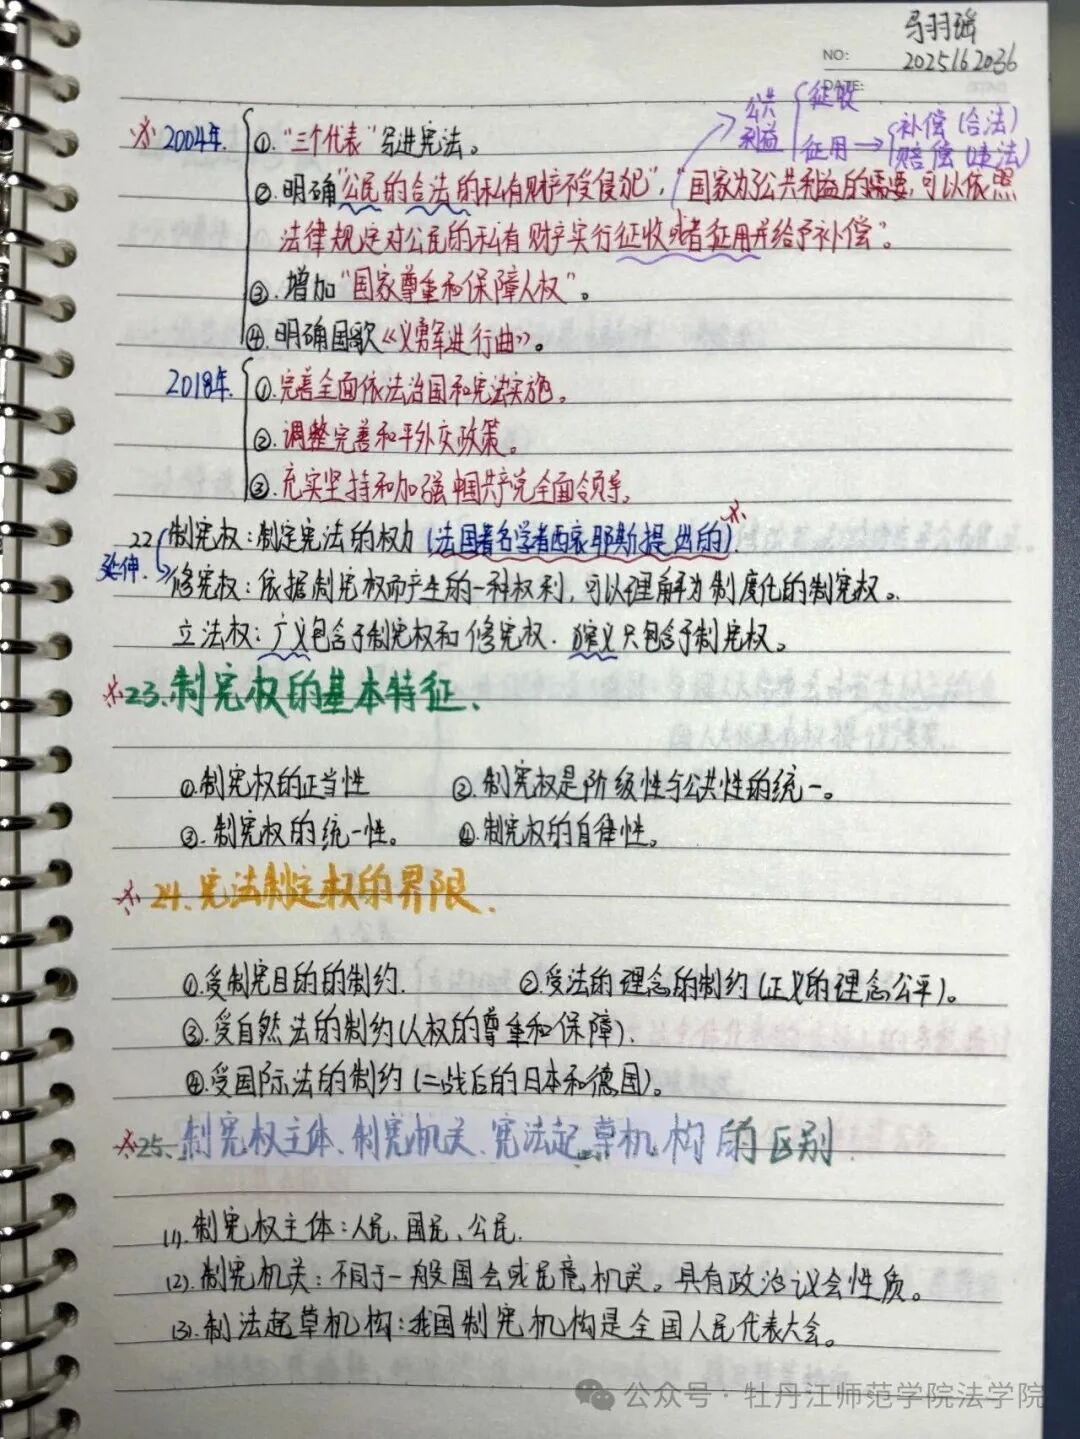 马羽瑶
NO:
2025162036
DATE:
公共利益 征收
征用→补偿(合法)
赔偿(违法)
※2004年 ①."三个代表"写进宪法。
②.明确"公民的合法的私有财产不受侵犯","国家为了公共利益的需要,可以依照
法律规定对公民的私有财产实行征收或者征用并给予补偿"。
③.增加"国家尊重和保障人权"。
④.明确国歌《义勇军进行曲》。
2018年 ①.完善全面依法治国和宪法实施。
②.调整完善和平外交政策。
③.充实坚持和加强中国共产党全面领导。
22 制宪权:制定宪法的权力(法国著名学者西哀耶斯提出的)※
延伸. 修宪权:依据制宪权而产生的一种权利,可以理解为制度化的制宪权。
立法权:广义包含于制宪权和修宪权.狭义只包含于制宪权。
※23.制宪权的基本特征.
①.制宪权的正当性 ②.制宪权是阶级性与公共性的统一。
③.制宪权的统一性。 ④.制宪权的自律性。
※24.宪法制定权的界限.
①.受制宪目的的制约. ②.受法的理念的制约(正义的理念公平)。
③.受自然法的制约(人权的尊重和保障).
④.受国际法的制约(二战后的日本和德国)。
※25.制宪权主体、制宪机关、宪法起草机构的区别
(1).制宪权主体:人民、国民、公民.
(2).制宪机关:不同于一般国会或民意机关。具有政治议会性质。
(3).制法起草机构:我国制宪机构是全国人民代表大会。
公众号·牡丹江师范学院法学院